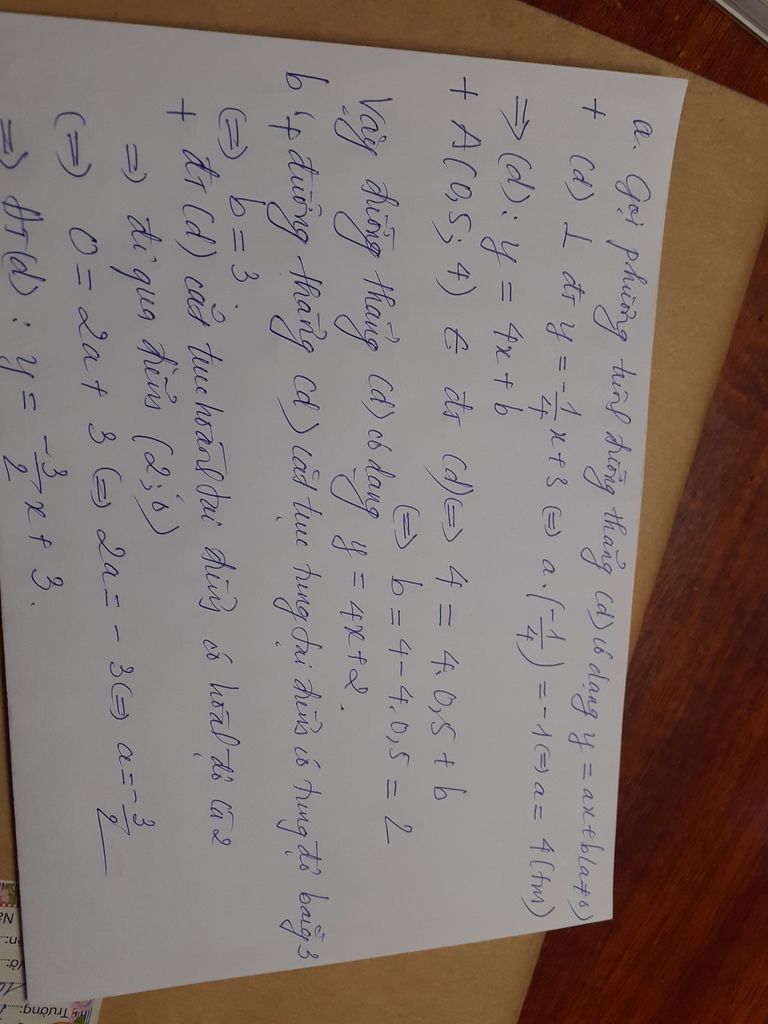 a. Gọi phương trình đường thẳng (d) có dạng y = ax+b (a≠0)
+ (d) ⊥ đt y = -1/4 x+3 (=) a.(-1/4) = -1 (=) a = 4 (tm)
=> (d): y = 4x + b
+ A(0,5; 4) ∈ đt (d) (=) 4 = 4.0,5 + b
(=) b = 4 - 4.0,5 = 2
Vậy đường thẳng (d) có dạng y = 4x+2.
b, + đường thẳng (d) cắt trục tung tại điểm có tung độ bằng 3
(=) b = 3
+ đt (d) cắt trục hoành tại điểm có hoành độ là 2
=> đi qua điểm (2;0)
(=) 0 = 2a + 3 (=) 2a = - 3 (=) a = -3/2
=> đt (d) : y = -3/2 x + 3.
Trường: